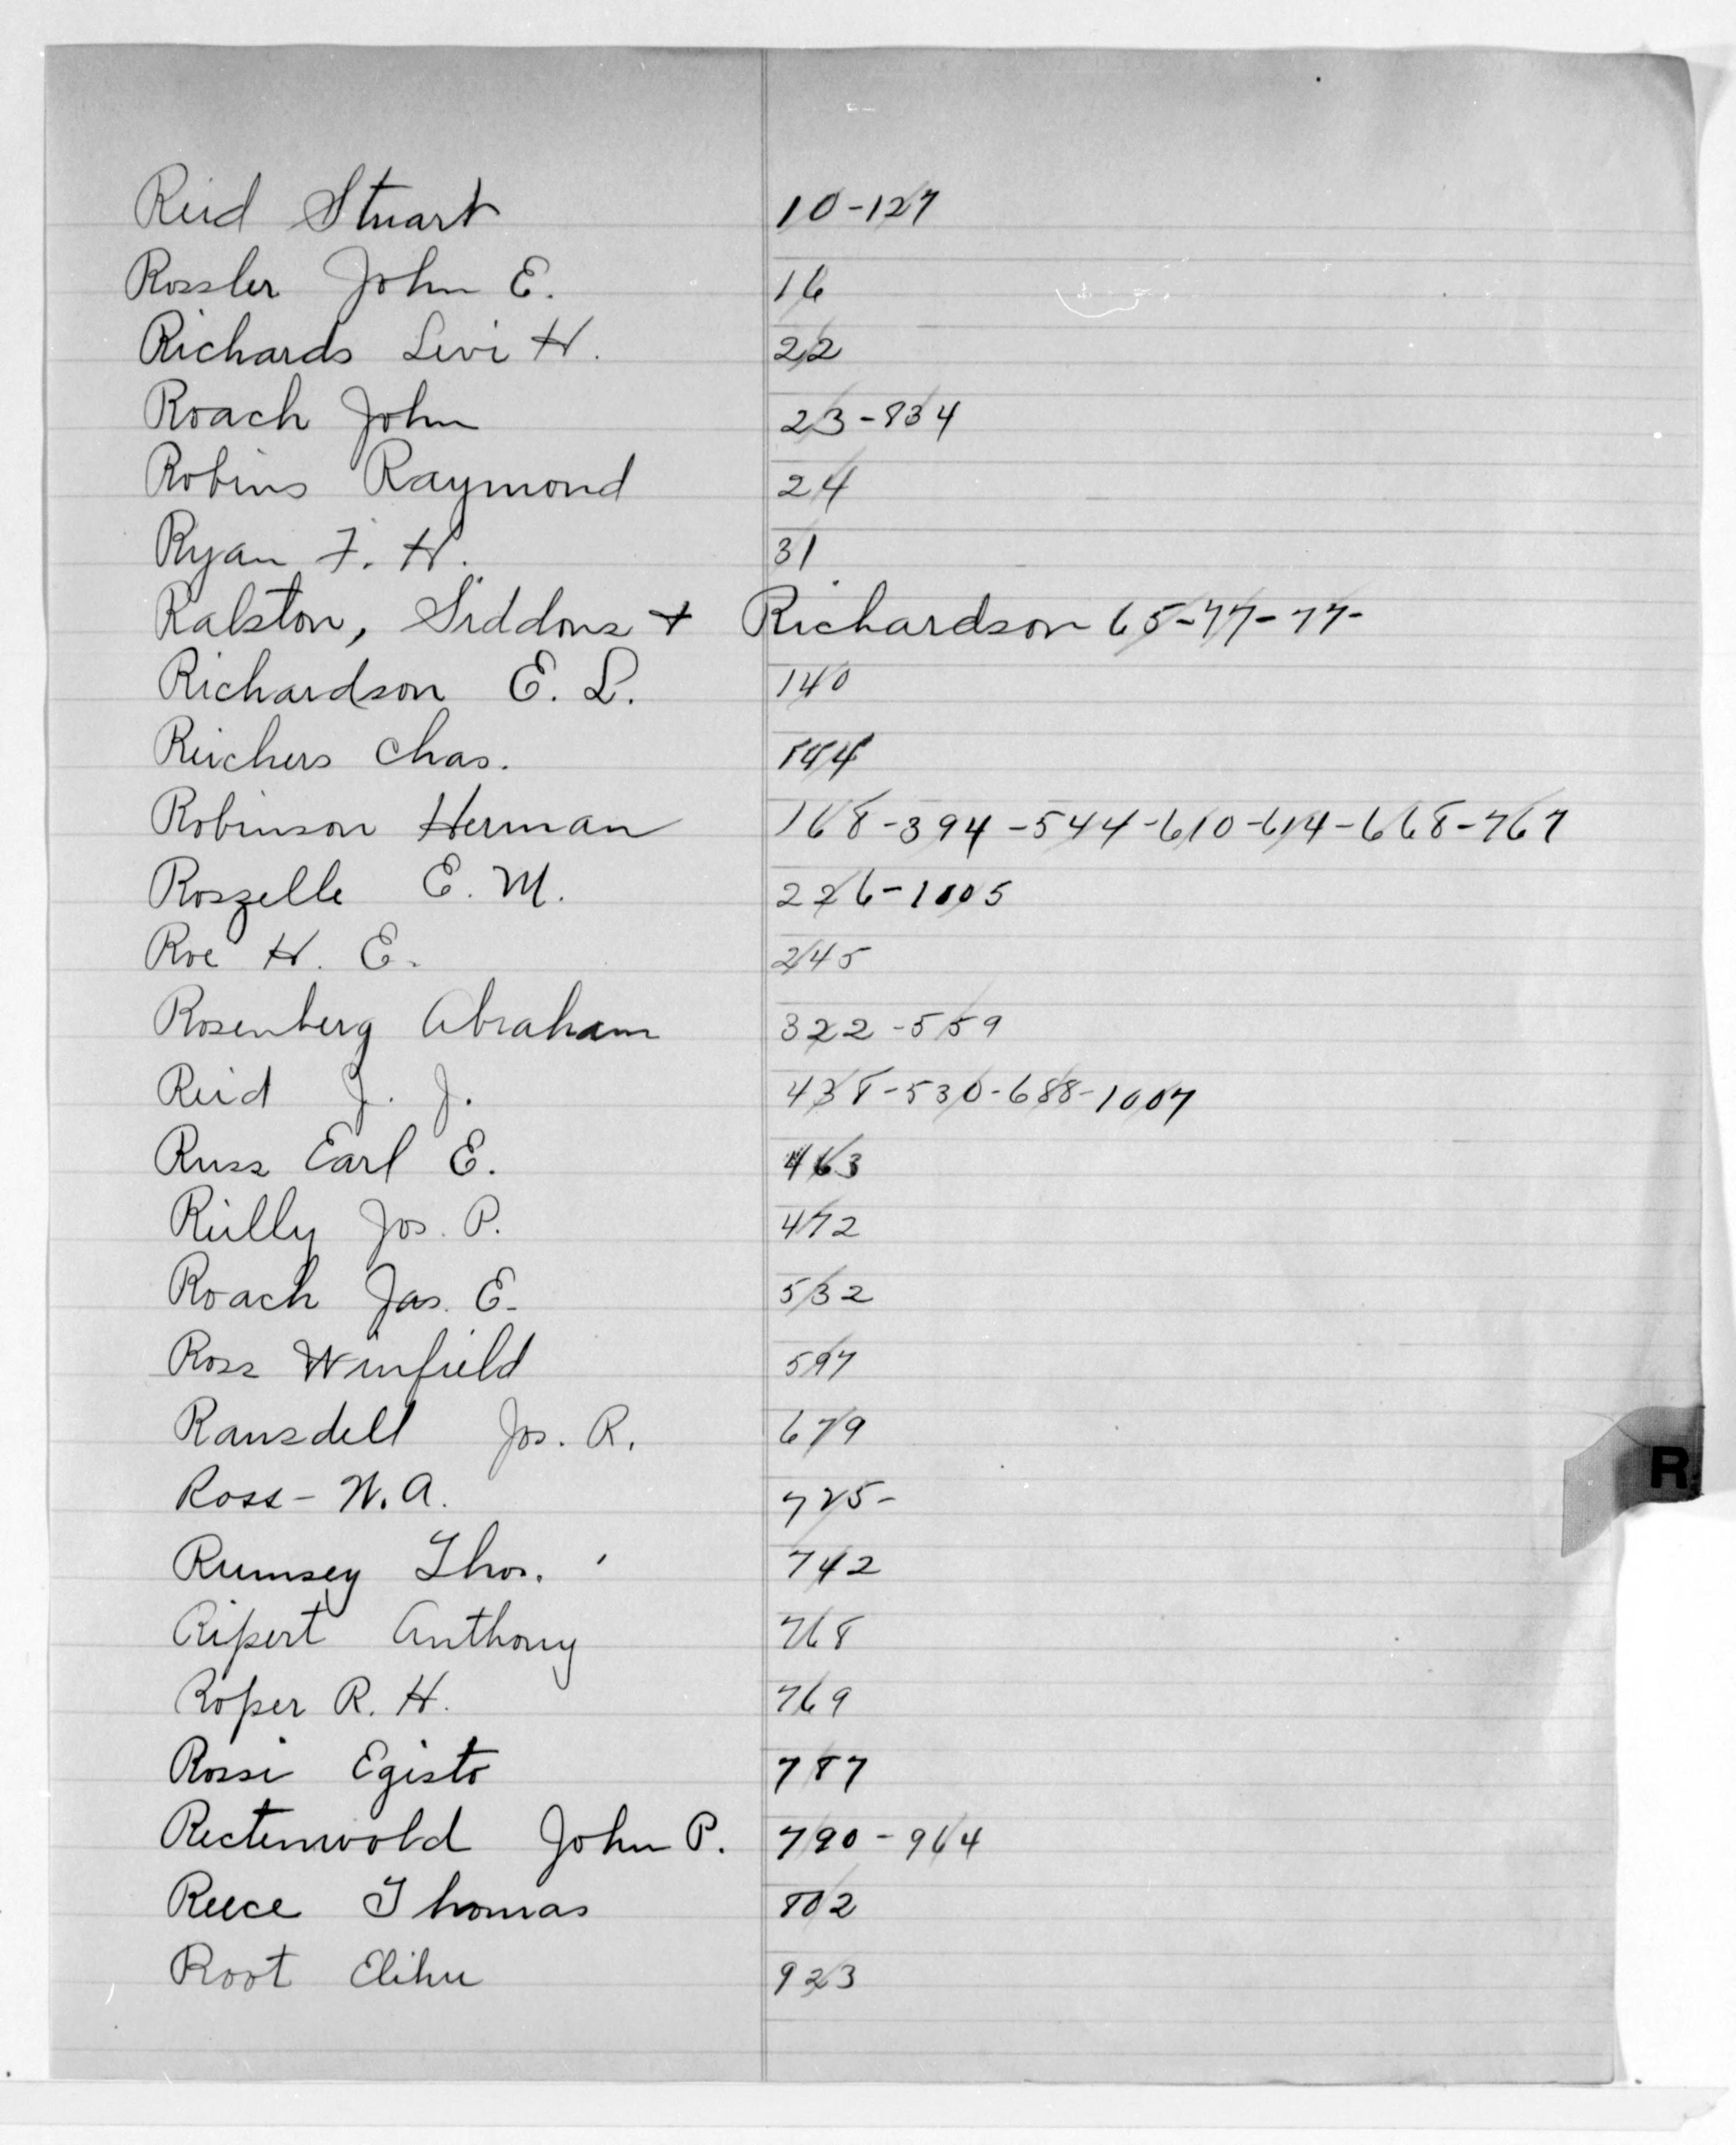 Reid Stuart 10-127
Rossler John E. 16
Richards Levi H. 22
Roach John 23-834
Robins Raymond 24
Ryan F. H. 31
Ralston, Siddons + Richardson 65-77-77-
Richardson E. L. 140
Reichers Chas. 144
Robinson Herman 168-394-544-610-614-668-767
Roszelle E. M. 226-1005
Roe H. E. 245
Rosenberg Abraham 322-559
Reid J. J. 438-530-688-1007
Russ Earl E. 463
Reilly Jos. P. 472
Roach Jas. E. 532
Ross Winfield 597
Ransdell Jos. R. 679
Ross- W. A. 725-
Rumsey Thos. 742
Ripert Anthony 768
Roper R. H. 769
Rossi Egisto 787
Rectenwold John P. 790-964
Reece Thomas 802
Root Elihu 923
R